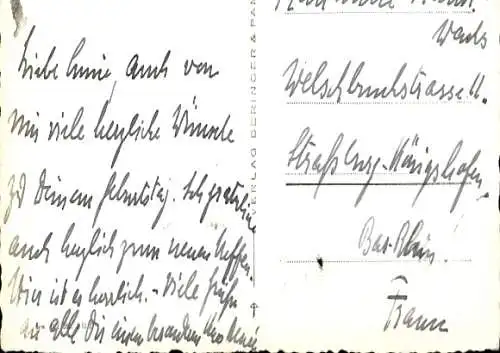 Liebe Annie, auch von
Mir viele herzliche Wünsche
zu Deinem Geburtstag. Ich gratuliere
auch herzlich zum neuen Neffen.
Hier ist es herrlich. - Viele Grüße
an alle Dir einen besonderen
VERLAG BERINGER &
Welschbruchstrasse 11.
Straßburg-Königshofen
Bas-Rhin!
France